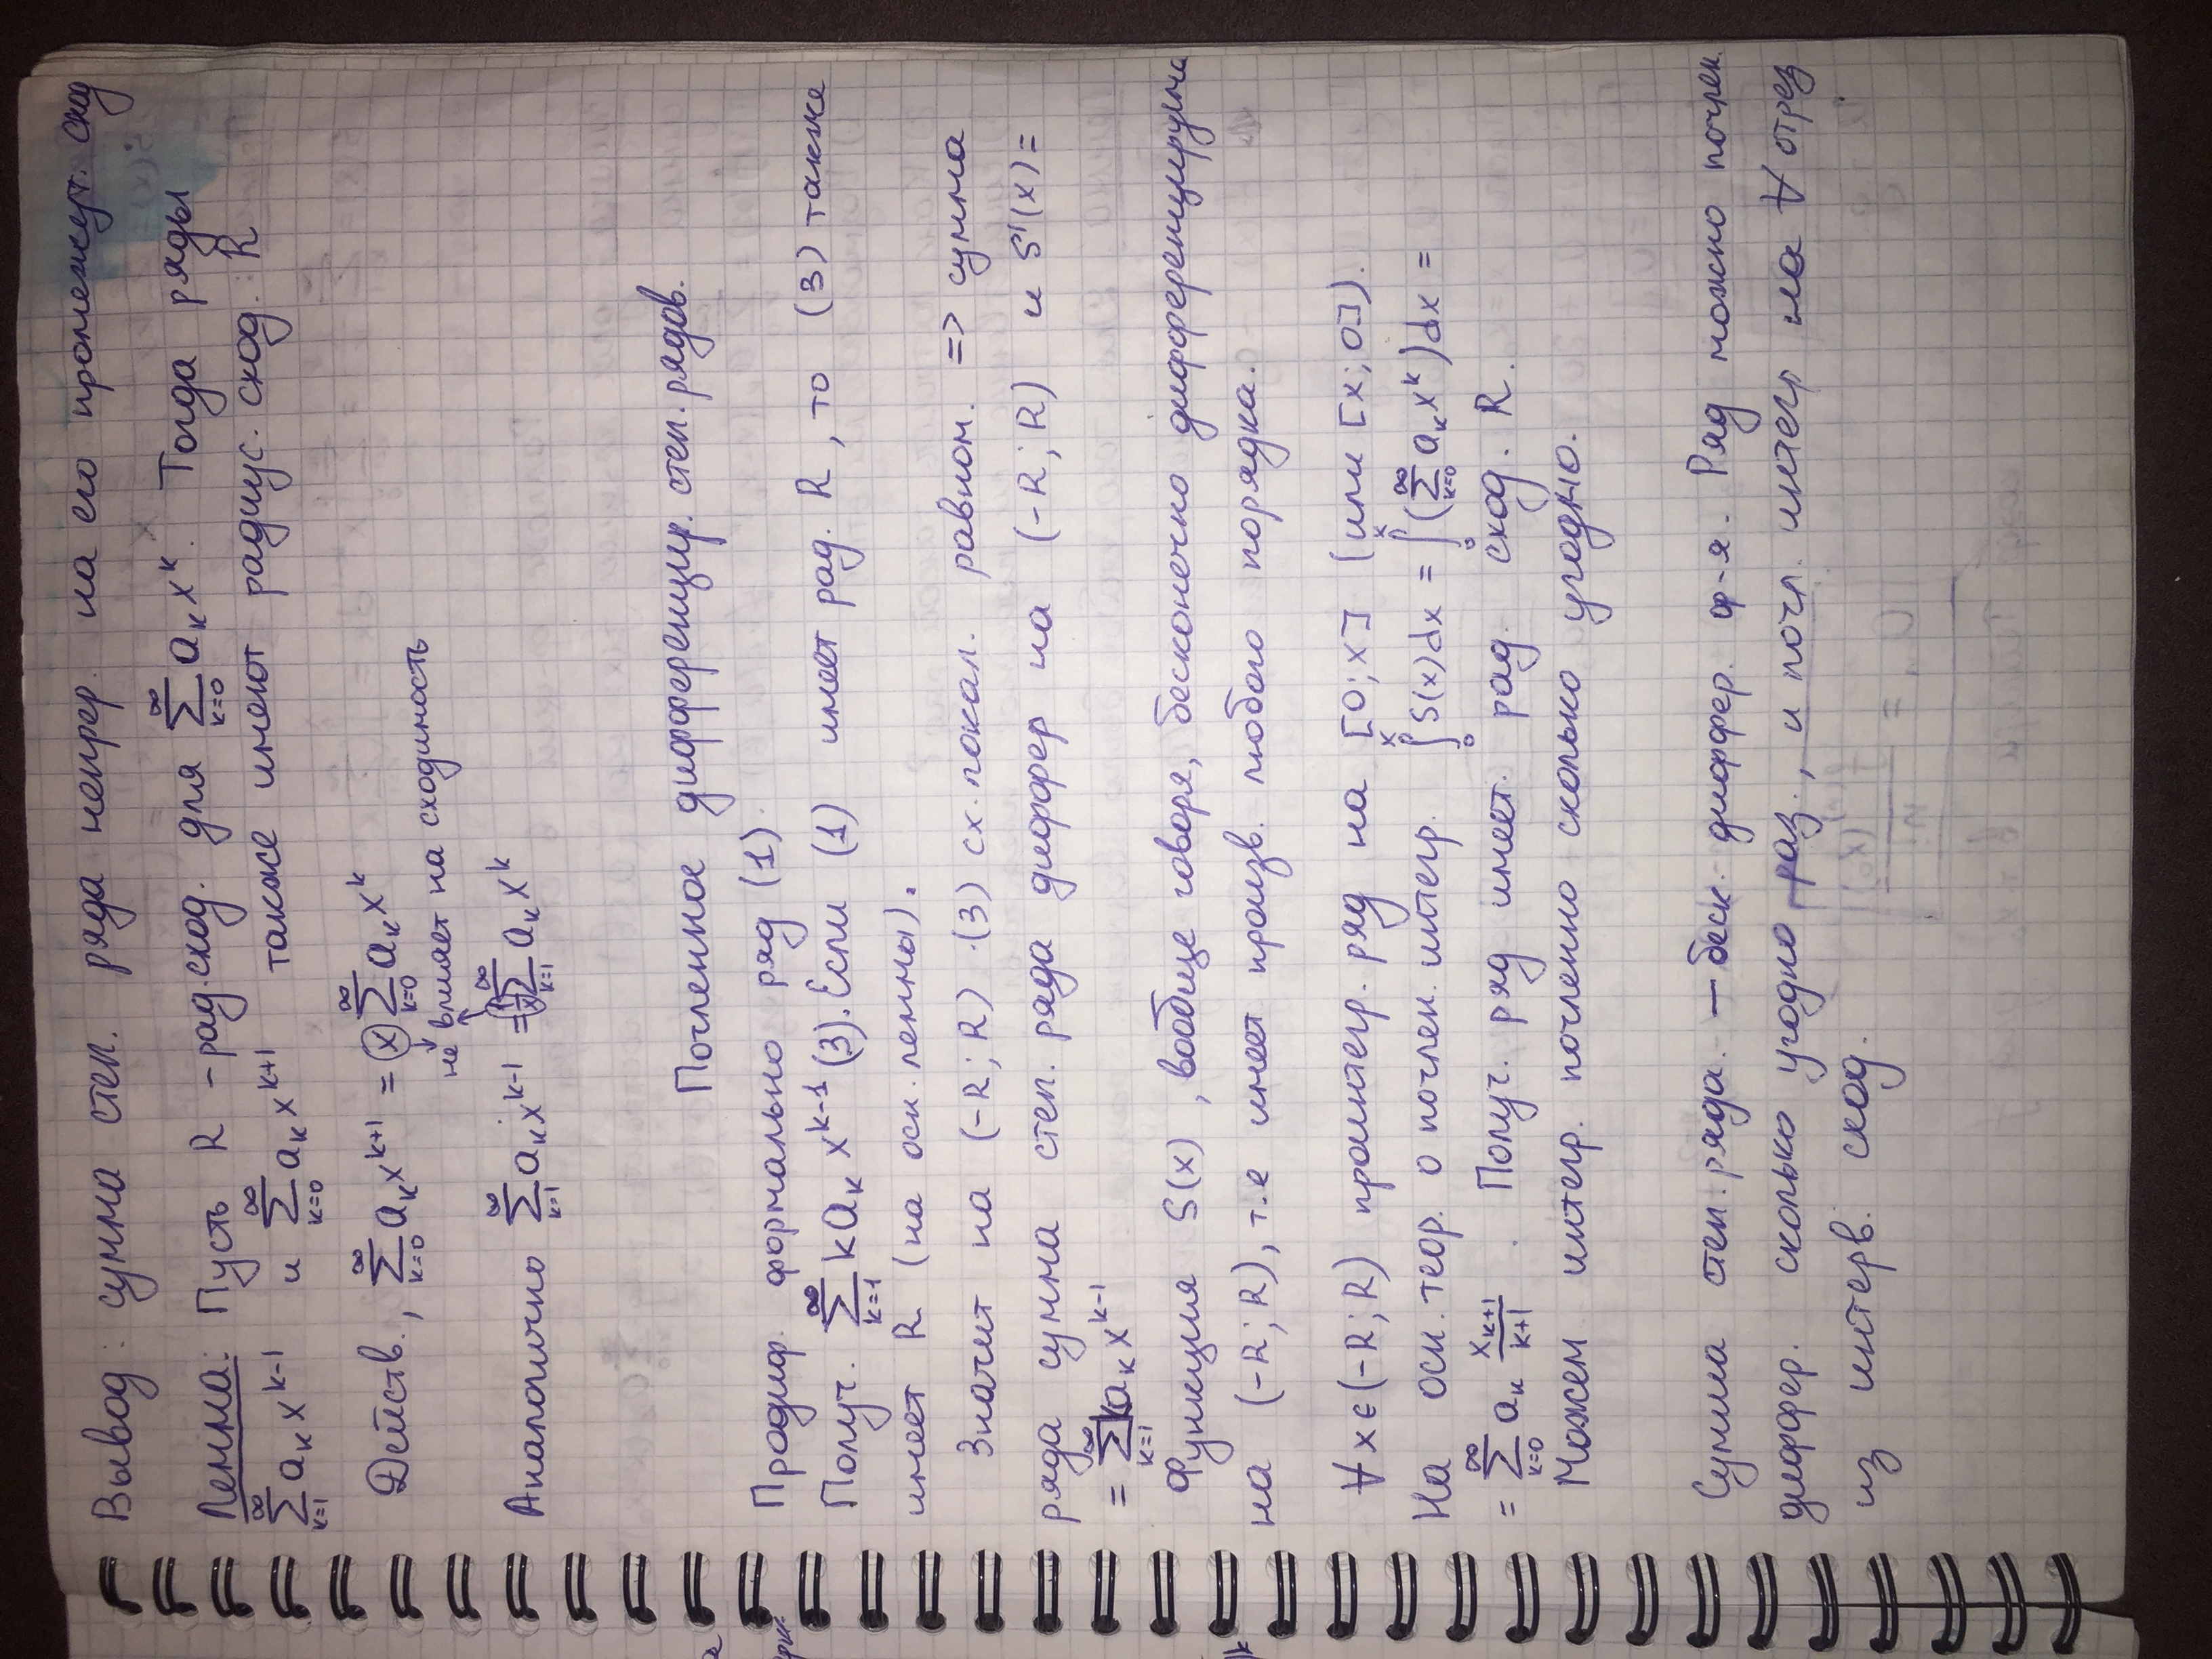 Вывод: сумма степ. ряда непрер. на его промежут. сход
Лемма: Пусть R – рад. сход. для ∑_{k=0}^{∞} a_k x^k. Тогда ряды
∑_{k=1}^{∞} a_k x^{k-1} и ∑_{k=0}^{∞} a_k x^{k+1} также имеют радиус. сход. R
Действ., ∑_{k=0}^{∞} a_k x^{k+1} = x ∑_{k=0}^{∞} a_k x^k
не влияет на сходимость
Аналогично ∑_{k=1}^{∞} a_k x^{k-1} = 1/x ∑_{k=1}^{∞} a_k x^k
Почленное дифференцир. степ. рядов.
Продиф. формально ряд (1).
Получ. ∑_{k=1}^{∞} k a_k x^{k-1} (3). Если (1) имеет рад. R, то (3) также
имеет R (на осн. леммы).
Значит на (-R; R) (3) сх. локал. равном. => сумма
ряда сумма степ. ряда диффер на (-R; R) и S'(x) =
= ∑_{k=1}^{∞} k a_k x^{k-1}
Функция S(x), вообще говоря, бесконечно дифференцируема
на (-R; R), т.е имеет произв. любого порядка.
∀ x ∈ (-R; R) проинтегр. ряд на [0; x] (или [x; 0]).
На осн. теор. о почлен. интегр. ∫_0^x S(x)dx = ∫_0^x (∑_{k=0}^{∞} a_k x^k) dx =
= ∑_{k=0}^{∞} a_k x_{k+1}/(k+1) . Получ. ряд имеет. рад. сход. R.
Можем интегр. почленно сколько угодно.
Сумма степ. ряда. – беск. диффер. ф-я. Ряд можно почлен.
диффер. сколько угодно раз., и почл. интегр на ∀ отрез
из интерв. сход.